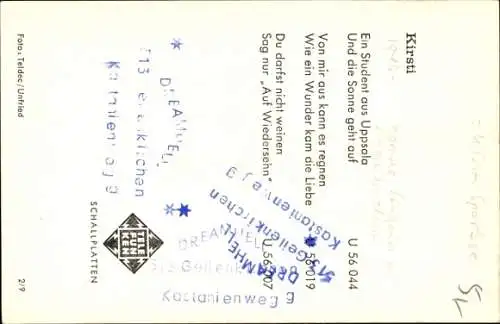 Kirsti
Ein Student aus Uppsala
Und die Sonne geht auf U 56 044
Von mir aus kann es regnen
Wie ein Wunder kam die Liebe 56 019
Du darfst nicht weinen
Sag nur „Auf Wiedersehn" U 56 007
TELEFUNKEN
SCHALLPLATTEN
Foto: Teldec/Unfried
2/9
DREAMHELL
513 Geilenkirchen
Kastanienweg 9
DREAMHELL
513 Geilenkirchen
Kastanienweg 9
DREAMHELL
513 Geilenkirchen
Kastanienweg 9